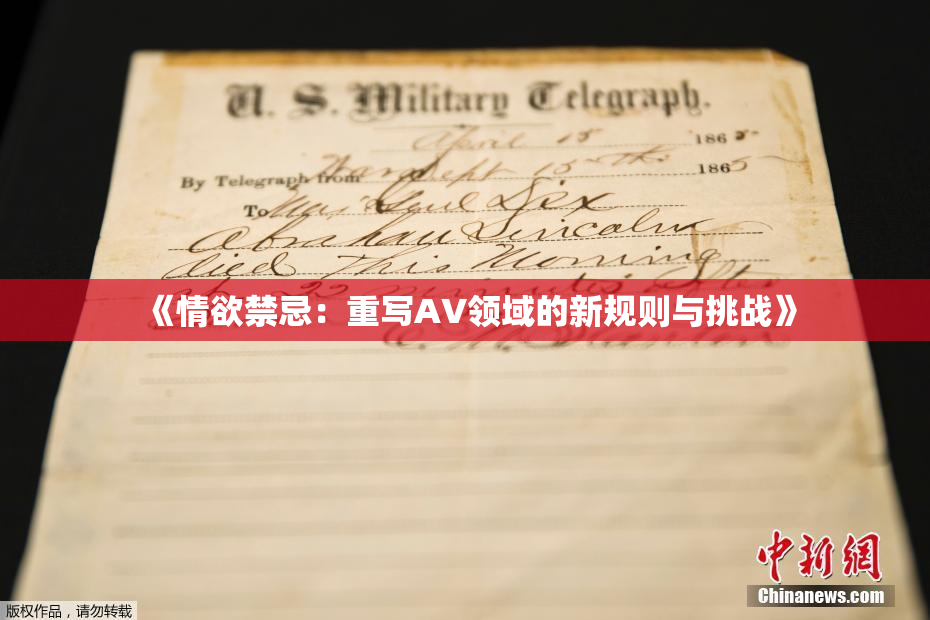 U. S. Military Telegraph.
April 15 1865
By Telegraph from War Dept 15th 1865
To Maj Genl Dix
Abraham Lincoln
died This Morning
at 22 minutes after
《情欲禁忌：重写AV领域的新规则与挑战》
E. M. Stanton
中新网
Chinanews.com
版权作品，请勿转载